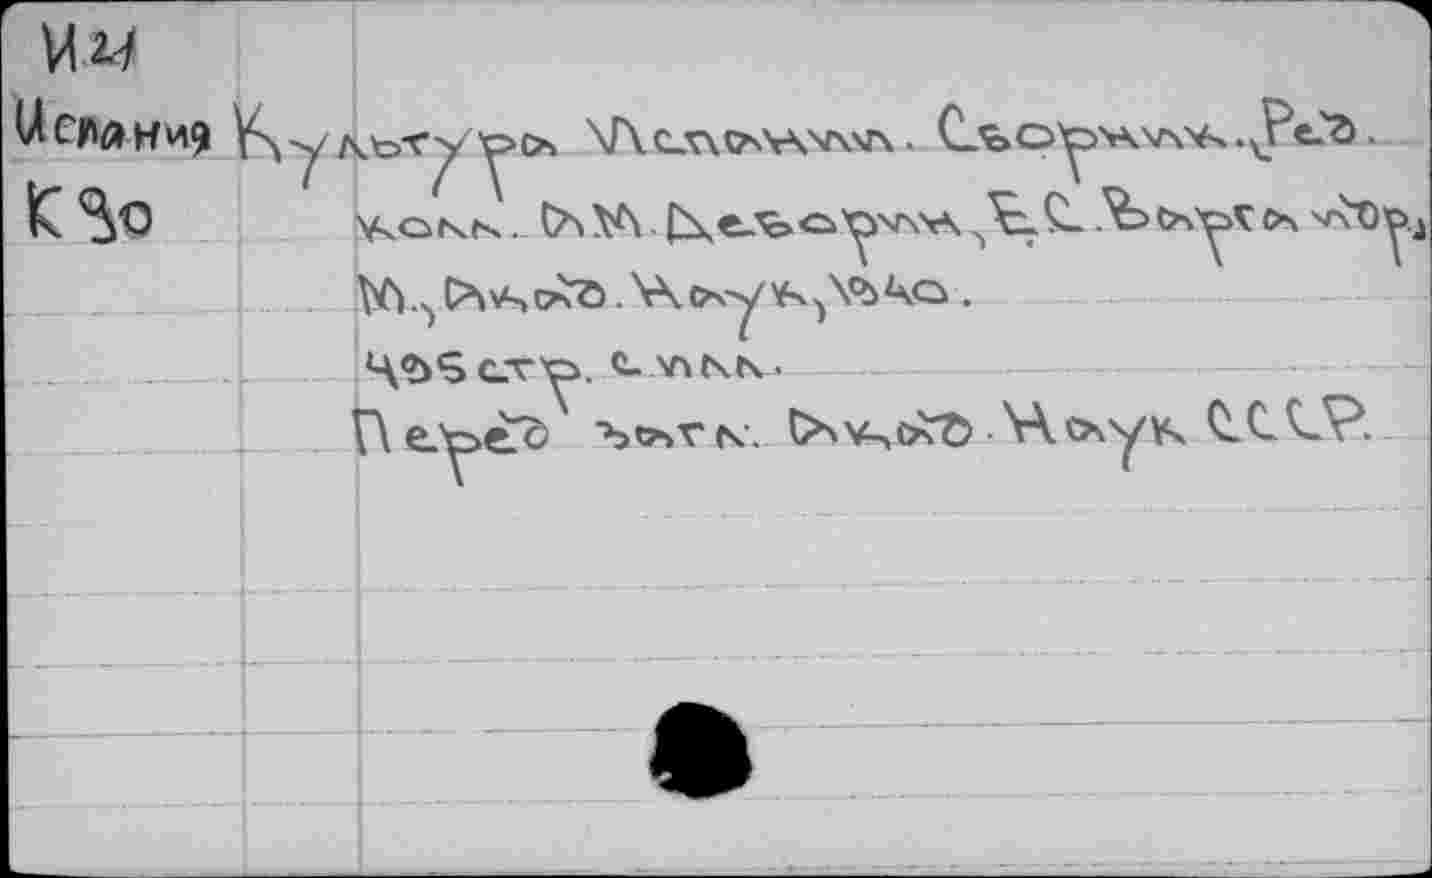 И24
Испания Культура Испании. Сборник. Ред.
К90 колл. А.М. Деборин, Б.С. Варга и др.,
М., Акад. Наук, 1940.
495 стр. с илл.
Перед загл: Акад. Наук СССР.